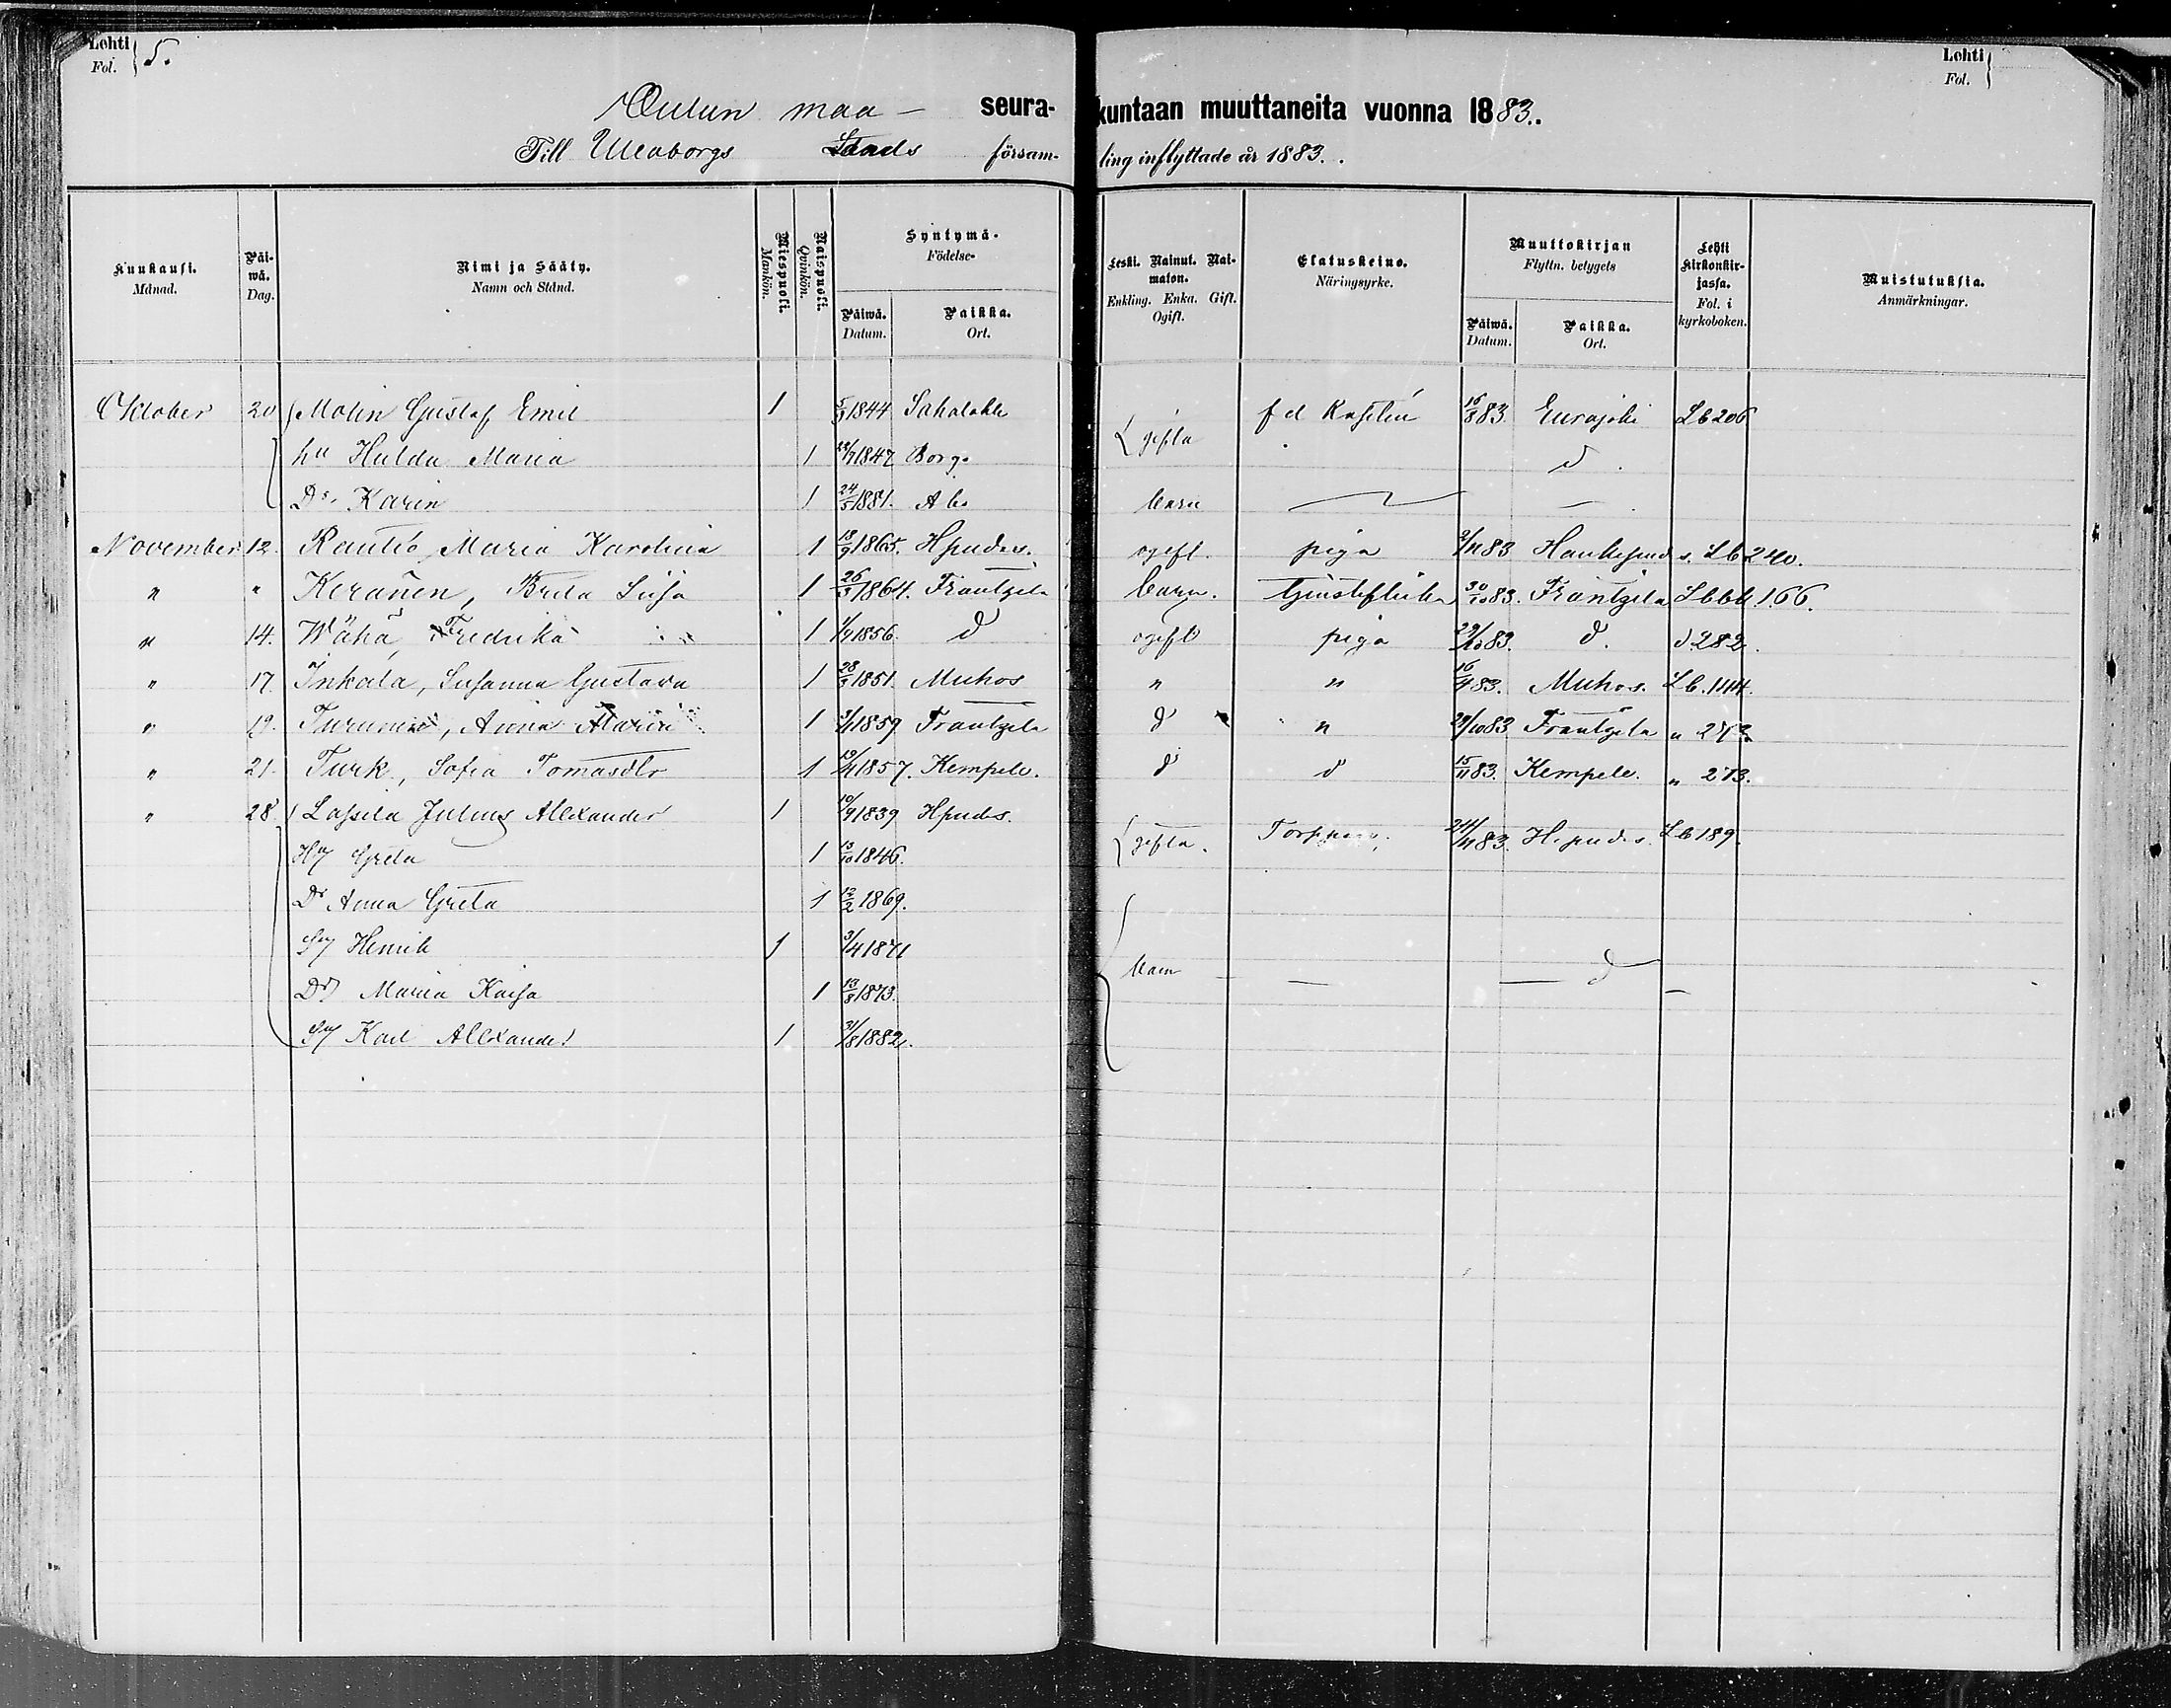 Lehti
Fol. 5.
Lehti
Fol.
Oulun maa- seura- kuntaan muuttaneita vuonna 1883.
Till Uleaborgs Lands försam- ling inflyttade år 1883.
Kuukausi. Månad. Päi-wä. Dag. Nimi ja Sääty. Namn och Stånd. Miespuoli. Mankön. Naispuoli. Qvinkön. Syntymä- Födelse- Päiwä. Datum. Paikka. Ort. Leski. Nainut. Nai-maton. Enkling. Enka. Gift. Ogift. Elatuskeino. Näringsyrke. Muuttokirjan Flyttn. betygets Päiwä. Datum. Paikka. Ort. Lehti kirkonkir-jassa. Fol. i kyrkoboken. Muistutuksia. Anmärkningar.
Oktober 20 Molin Gustaf Emil 1 1844 Sahalahti gifta f d 16/8 83. Eurajoki Lb 206
hu Hulda Maria 1 1847 Borgo d
Dr Karin 1 24/5 1881. Abo barn
November 12. Rautio Maria Karolina 1 18/9 1865. Hpudas. ogift. piga 2/11 83 Haukipudas. Lb 240.
" " Keränen, Brita Liisa 1 26/3 1864. Frantzila barn. 30/10 83. Frantzila Lbbb 166.
" 14. Wähä, Fredrika 1 1/7 1856. d ogift piga 29/10 83. d. d 282.
" 17. Inkala, Susanna Gustava 1 28/3 1851. Muhos " " 16/9 83. Muhos. Lb. 1114.
" 19. Turunen, Anna Maria 1 3/11 1859 Frantzila d " 29/10 83 Frantzila " 273.
" 21. Turk, Sofia Tomasdtr 1 13/11 1857. Kempele. d d 15/11 83. Kempele. " 273.
" 28. Lassila Julius Alexander 1 10/9 1839 Hpudas. gifta. 24/11 83. H.pudas. Lb 189.
Hu Greta 1 13/10 1846.
Dr Anna Greta 1 12/2 1869. barn d
Sn Henrik 1 3/4 1871
Dr Maria Kaisa 1 13/8 1873.
Sn Karl Alexander 1 31/8 1882.